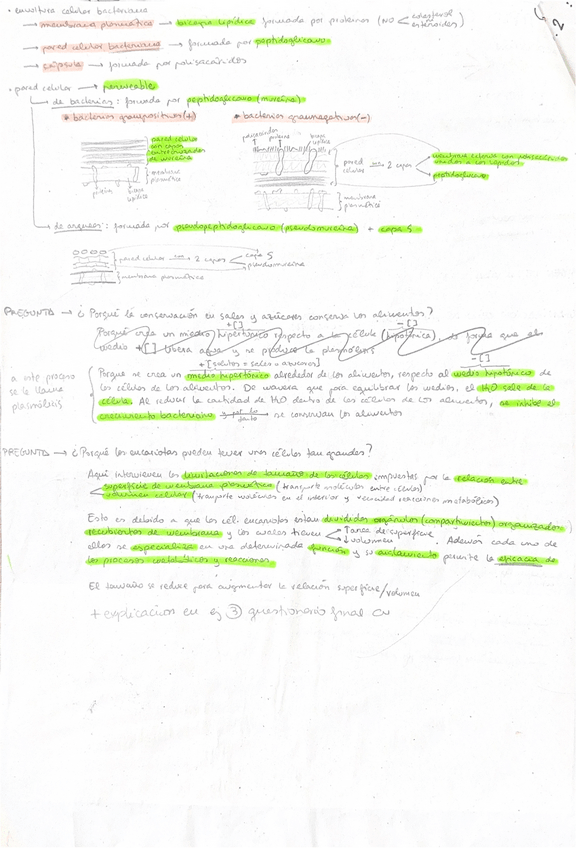 • envoltura celular bacteriana
→ membrana plasmática → bicapa lipídica formada por proteínas (NO < colesterol esteroides)
→ pared celular bacteriana → formada por peptidoglicano
→ cápsula → formada por polisacáridos
• pared celular → permeable
→ de bacterias: formada por peptidoglicano (mureína)
* bacterias grampositivas (+)
* bacterias gramnegativas (-)
pared celular con capas de mureína
membrana plasmática
proteína
bicapa lipídica
proteína
bicapa lipídica
pared celular → 2 capas
peptidoglicano
membrana plasmática
→ de arqueas: formada por pseudopeptidoglicano (pseudomureína) + capa S
pared celular → 2 capas < capa S pseudomureína
membrana plasmática
PREGUNTA → ¿Porqué la conservación en sales y azúcares conserva los alimentos?
+[ ] -[ ]
Porqué crea un medio hipertónico respecto a la célula (hipotónica), de forma que el
medio +[ ] agua y se produce la plasmólisis
+[solutos = sales o azúcares] -[ ]
a este proceso se le llama plasmólisis
Porque se crea un medio hipertónico alrededor de los alimentos, respecto al medio hipotónico de
las células de los alimentos. De manera que para equilibrar los medios, el H2O sale de la
célula. Al reducir la cantidad de H2O dentro de las células de los alimentos, se inhibe el
crecimiento bacteriano → por lo tanto → se conservan los alimentos
PREGUNTA → ¿Porqué los eucariotas pueden tener unas células tan grandes?
Aquí intervienen las limitaciones de tamaño de las células impuestas por la relación entre
superficie de membrana plasmática (transporte moléculas entre células)
volumen celular (transporte moléculas en el interior y velocidad reacciones metabólicas)
Esto es debido a que las cél. eucariotas están divididas orgánulos (compartimentos) organizados
recubiertos de membrana y los cuales tienen < ↑ área de superficie ↓ volumen. Además cada uno de
ellos se especializa en una determinada función y su aislamiento permite la eficacia de
los procesos catabólicos y reacciones.
El tamaño se reduce para augmentar la relación superficie/volumen
+ explicación en ej ③ questionario final